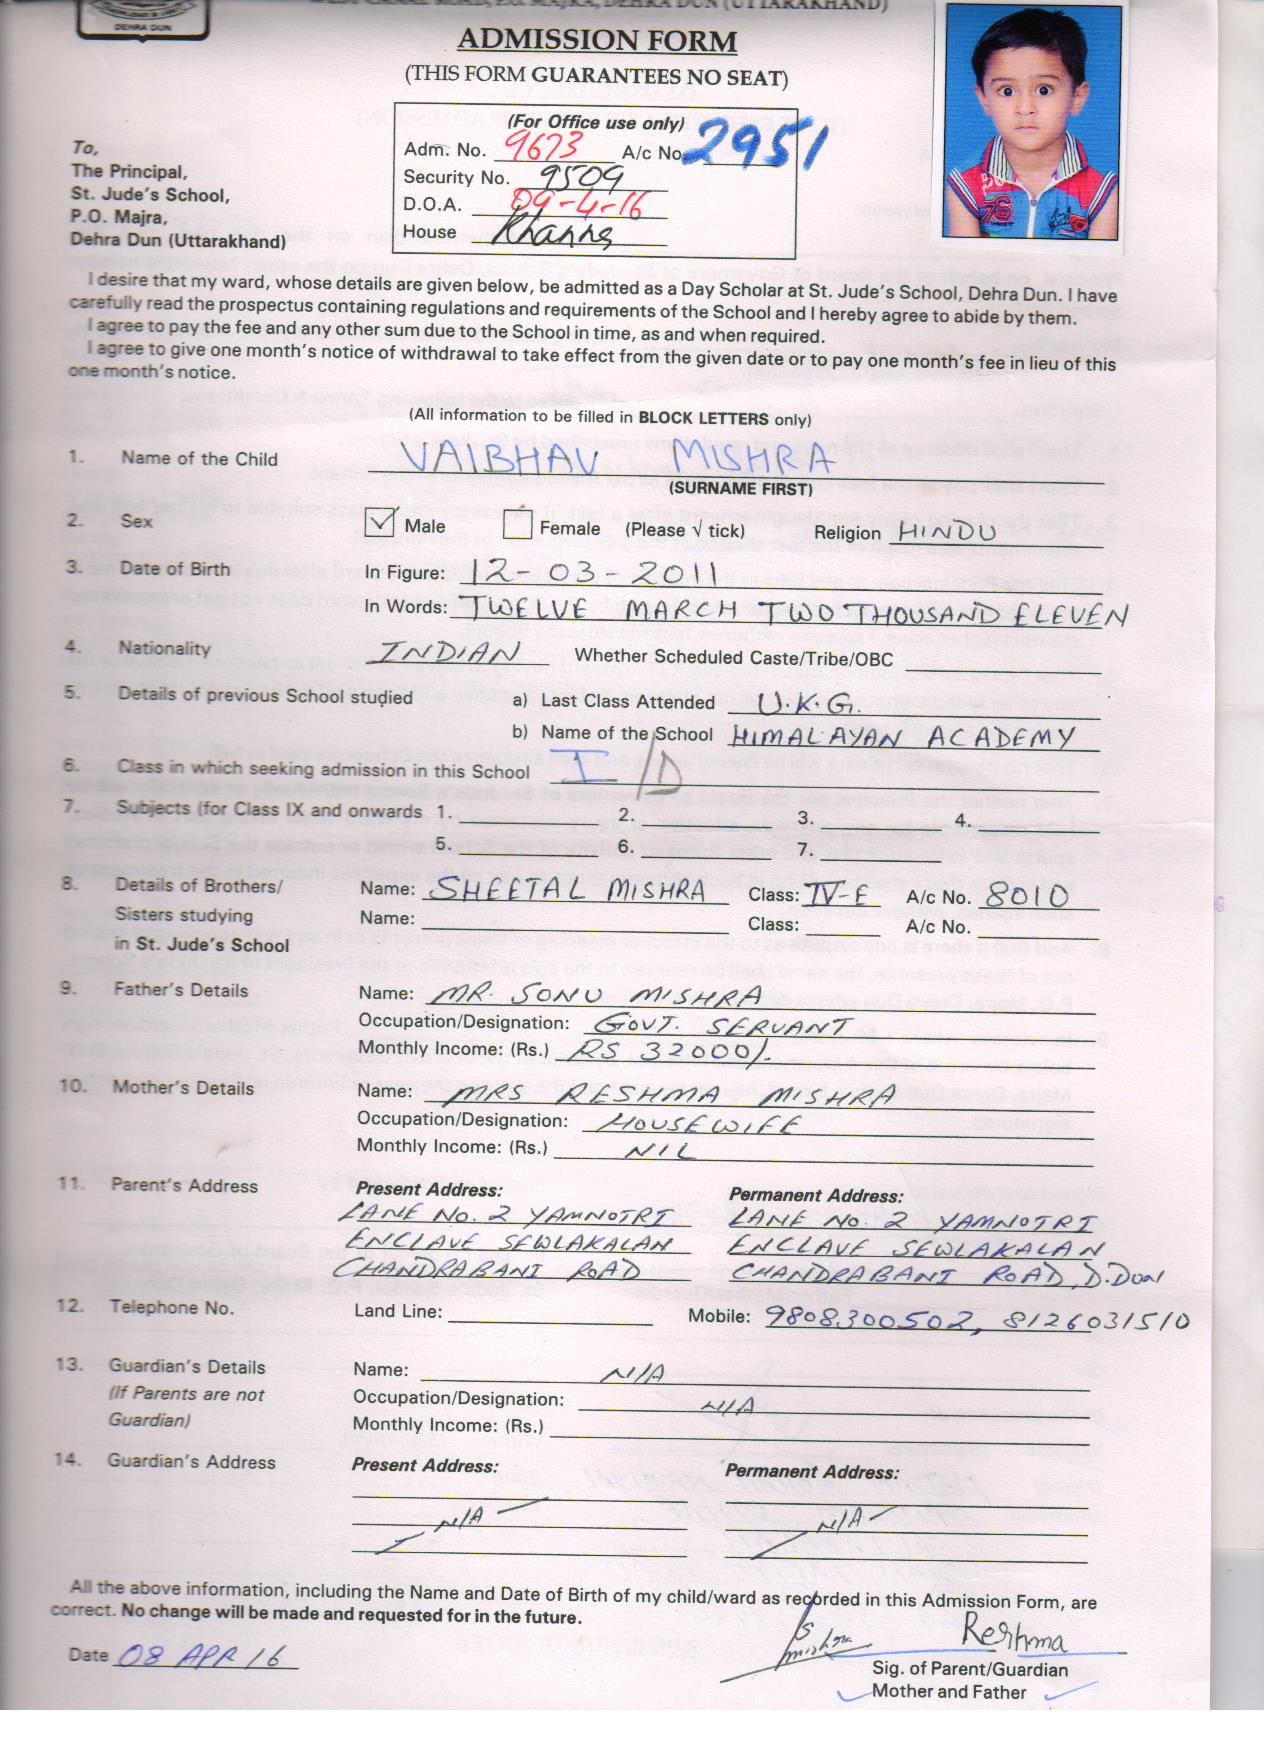 DEHRA DUN
WEST CANAL ROAD, P.O. MAJRA, DEHRA DUN (UTTARAKHAND)
ADMISSION FORM
(THIS FORM GUARANTEES NO SEAT)
(For Office use only)
Adm. No. 9673 A/c No. 2951
Security No. 9509
D.O.A. 09-4-16
House Khanna
To,
The Principal,
St. Jude's School,
P.O. Majra,
Dehra Dun (Uttarakhand)
I desire that my ward, whose details are given below, be admitted as a Day Scholar at St. Jude's School, Dehra Dun. I have
carefully read the prospectus containing regulations and requirements of the School and I hereby agree to abide by them.
I agree to pay the fee and any other sum due to the School in time, as and when required.
I agree to give one month's notice of withdrawal to take effect from the given date or to pay one month's fee in lieu of this
one month's notice.
(All information to be filled in BLOCK LETTERS only)
1. Name of the Child VAIBHAV MISHRA
(SURNAME FIRST)
2. Sex ✓ Male Female (Please √ tick) Religion HINDU
3. Date of Birth In Figure: 12-03-2011
In Words: TWELVE MARCH TWO THOUSAND ELEVEN
4. Nationality INDIAN Whether Scheduled Caste/Tribe/OBC
5. Details of previous School studied a) Last Class Attended U.K.G.
b) Name of the School HIMALAYAN ACADEMY
6. Class in which seeking admission in this School I/D
7. Subjects (for Class IX and onwards 1. 2. 3. 4.
5. 6. 7.
8. Details of Brothers/ Name: SHEETAL MISHRA Class: IV-E A/c No. 8010
Sisters studying Name: Class: A/c No.
in St. Jude's School
9. Father's Details Name: MR. SONU MISHRA
Occupation/Designation: GOVT. SERVANT
Monthly Income: (Rs.) RS 32000/.
10. Mother's Details Name: MRS RESHMA MISHRA
Occupation/Designation: HOUSEWIFE
Monthly Income: (Rs.) NIL
11. Parent's Address Present Address: Permanent Address:
LANE No. 2 YAMNOTRI LANE No. 2 YAMNOTRI
ENCLAVE SEWLAKALAN ENCLAVE SEWLAKALAN
CHANDRABANI ROAD CHANDRABANI ROAD, D.DUN
12. Telephone No. Land Line: Mobile: 9808300502, 8126031510
13. Guardian's Details Name: N/A
(If Parents are not Occupation/Designation: N/A
Guardian) Monthly Income: (Rs.)
14. Guardian's Address Present Address: Permanent Address:
N/A N/A
All the above information, including the Name and Date of Birth of my child/ward as recorded in this Admission Form, are
correct. No change will be made and requested for in the future.
Date 08 APR 16 S mishra Reshma
Sig. of Parent/Guardian
Mother and Father